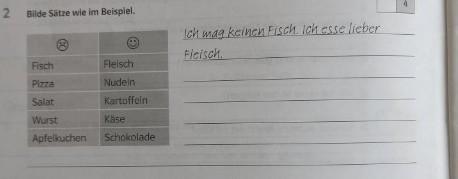 4
2 Bilde Sätze wie im Beispiel.
Ich mag keinen Fisch. Ich esse lieber
Fleisch.
Fisch Fleisch
Pizza Nudeln
Salat Kartoffeln
Wurst Käse
Apfelkuchen Schokolade